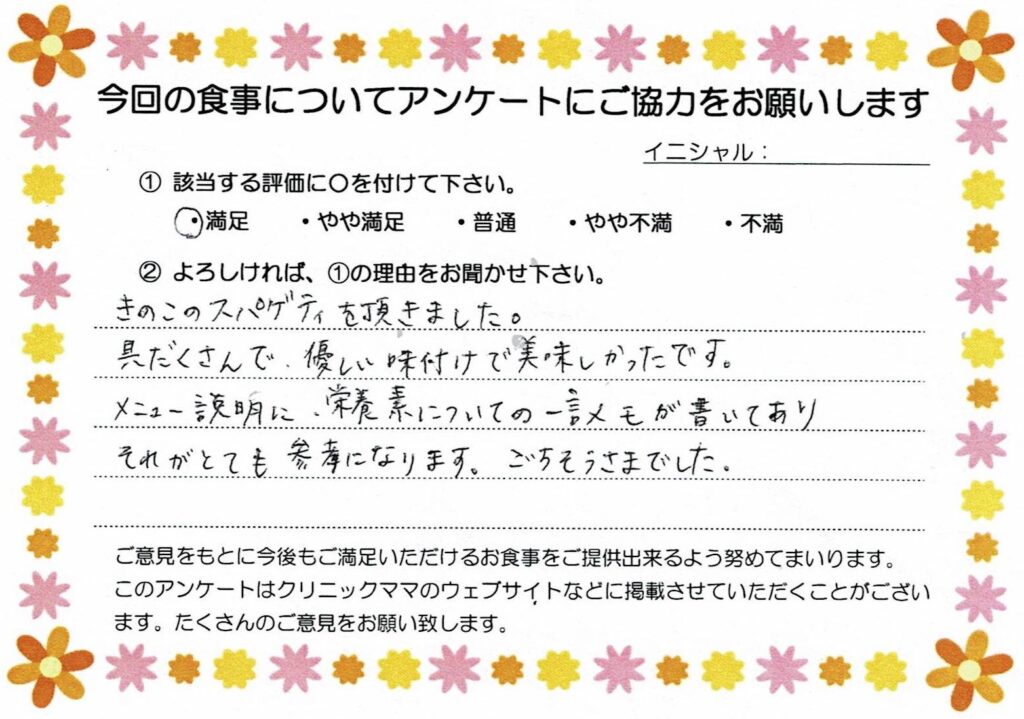 今回の食事についてアンケートにご協力をお願いします
イニシャル：
① 該当する評価に〇を付けて下さい。
・満足 ・やや満足 ・普通 ・やや不満 ・不満
② よろしければ、①の理由をお聞かせ下さい。
きのこのスパゲティを頂きました。
具だくさんで、優しい味付けで美味しかったです。
メニュー説明に、栄養素についての一言メモが書いてあり
それがとても参考になります。ごちそうさまでした。
ご意見をもとに今後もご満足いただけるお食事をご提供出来るよう努めてまいります。
このアンケートはクリニックママのウェブサイトなどに掲載させていただくことがござい
ます。たくさんのご意見をお願い致します。